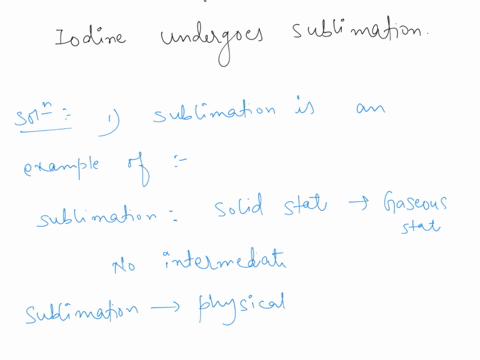 Iodine undergoes sublimation.
Solⁿ :- 1) sublimation is an
example of :-
sublimation: solid stat → Gaseous
stat
No intermediat
sublimation → physical